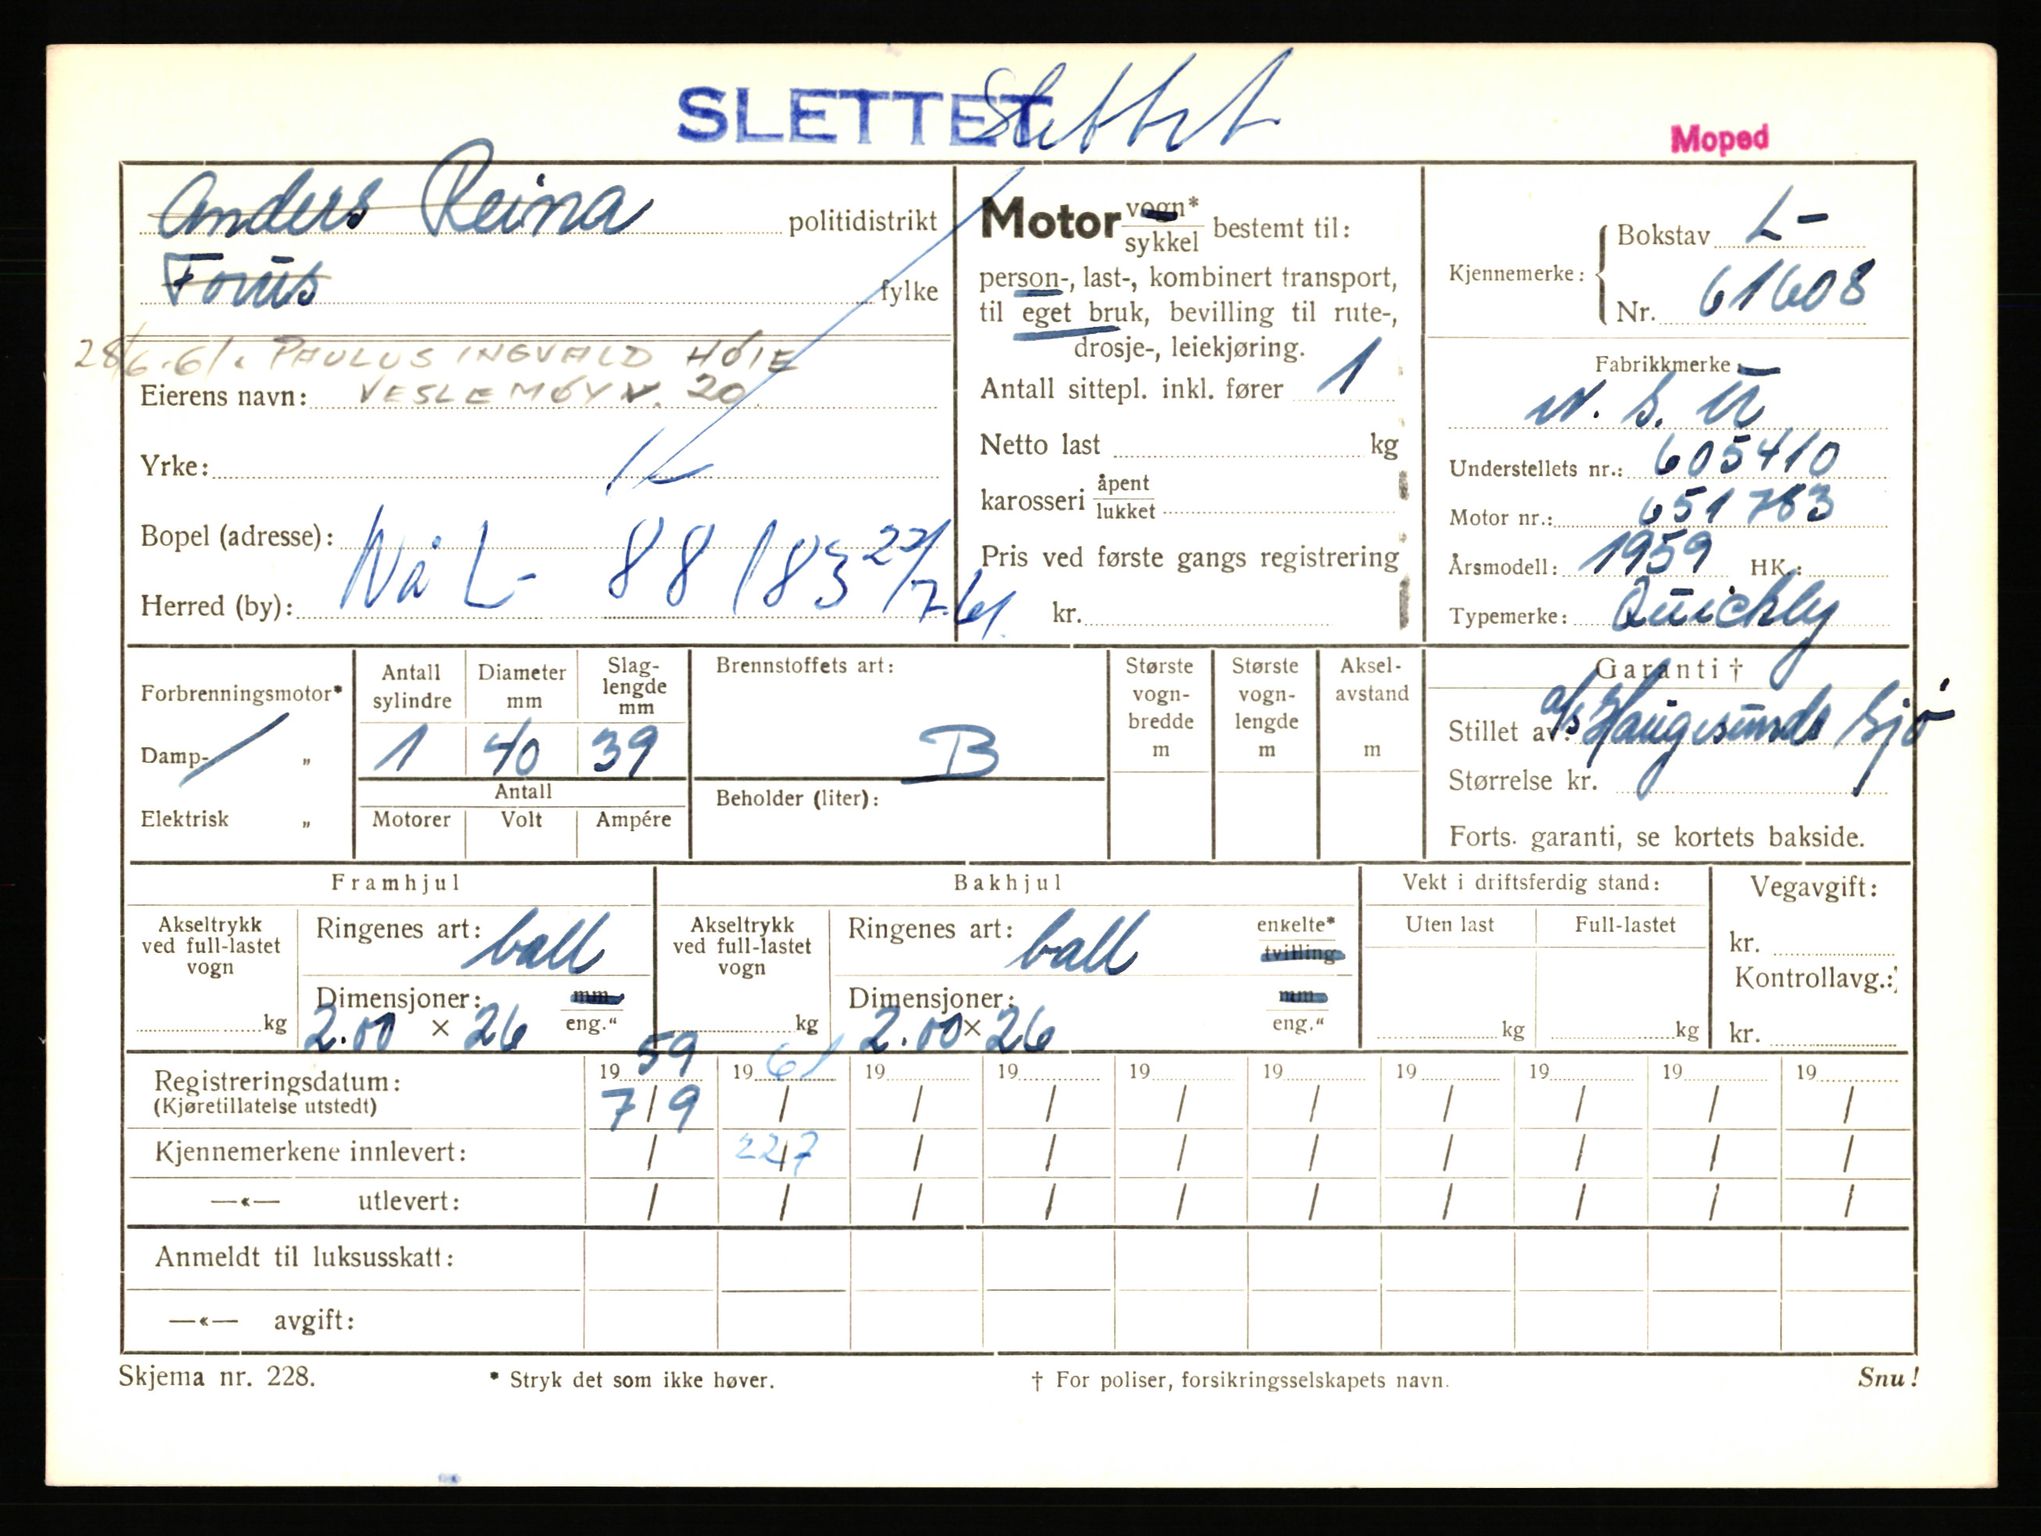 SLETTET Slettet
Moped
Anders Reina politidistrikt
Forus fylke
28/6.61. PAULUS INGVALD HØIE
Eierens navn: VESLEMØYV. 20.
Yrke:
Bopel (adresse):
Nå L- 88183 22/7.61.
Herred (by):
Motor vogn* sykkel bestemt til:
person-, last-, kombinert transport,
til eget bruk, bevilling til rute-,
drosje-, leiekjøring.
Antall sittepl. inkl. fører 1
Netto last kg
karosseri åpent lukket
Pris ved første gangs registrering
kr.
Kjennemerke: Bokstav L-
Nr. 61608
Fabrikkmerke:
N. S. U
Understellets nr.: 605410
Motor nr.: 651783
Årsmodell: 1959 HK.:
Typemerke: Quickly
Forbrenningsmotor*
Damp- „
Elektrisk „
Antall sylindre Diameter mm Slag-lengde mm
1 40 39
Antall
Motorer Volt Ampére
Brennstoffets art:
B
Beholder (liter):
Største vogn-bredde m
Største vogn-lengde m
Aksel-avstand m
Garanti †
Stillet av: a/s Haugesunds Sjø
Størrelse kr.
Forts. garanti, se kortets bakside.
Framhjul
Akseltrykk ved full-lastet vogn
kg
Ringenes art: ball
Dimensjoner: mm
2.00 × 26 eng."
Bakhjul
Akseltrykk ved full-lastet vogn
kg
Ringenes art: ball enkelte* tvilling
Dimensjoner: mm
2.00 × 26 eng."
Vekt i driftsferdig stand:
Uten last Full-lastet
kg kg
Vegavgift:
kr.
Kontrollavg.:
kr.
Registreringsdatum: 19 59 19 61 19 19 19 19 19 19 19 19
(Kjøretillatelse utstedt) 7/9 / / / / / / / / /
Kjennemerkene innlevert: / 22/7 / / / / / / / /
—«— utlevert: / / / / / / / / / /
Anmeldt til luksusskatt:
—«— avgift:
Skjema nr. 228. * Stryk det som ikke høver. † For poliser, forsikringsselskapets navn. Snu!